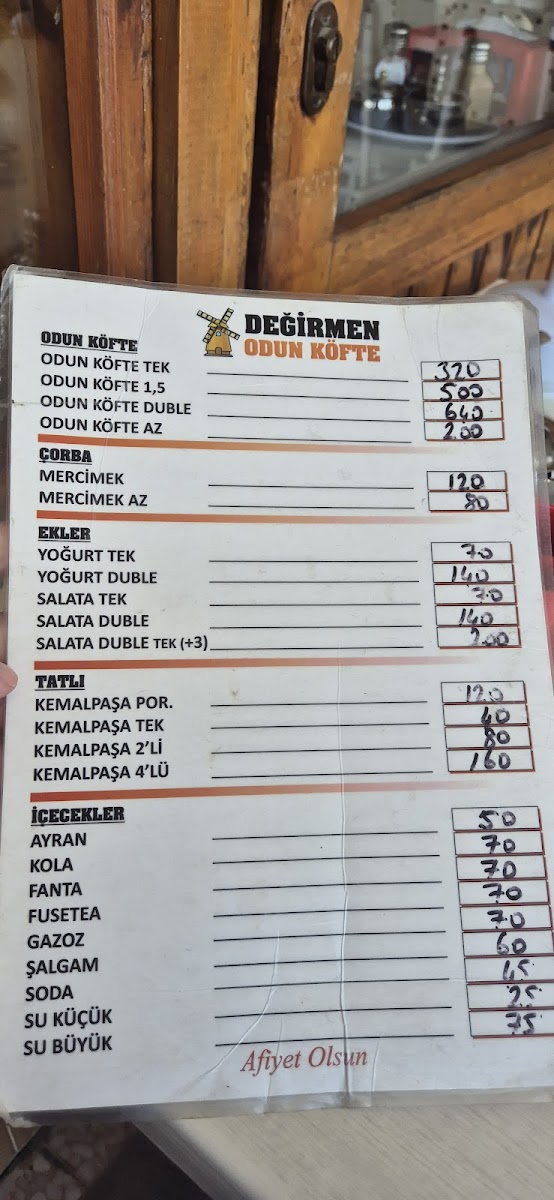 DEĞİRMEN
ODUN KÖFTE
ODUN KÖFTE
ODUN KÖFTE TEK 320
ODUN KÖFTE 1,5 500
ODUN KÖFTE DUBLE 640
ODUN KÖFTE AZ 200
ÇORBA
MERCİMEK 120
MERCİMEK AZ 80
EKLER
YOĞURT TEK 70
YOĞURT DUBLE 140
SALATA TEK 70
SALATA DUBLE 140
SALATA DUBLE TEK (+3) 200
TATLI
KEMALPAŞA POR. 120
KEMALPAŞA TEK 40
KEMALPAŞA 2'Lİ 80
KEMALPAŞA 4'LÜ 160
İÇECEKLER
AYRAN 50
KOLA 70
FANTA 70
FUSETEA 70
GAZOZ 70
ŞALGAM 60
SODA 45
SU KÜÇÜK 25
SU BÜYÜK 75
Afiyet Olsun